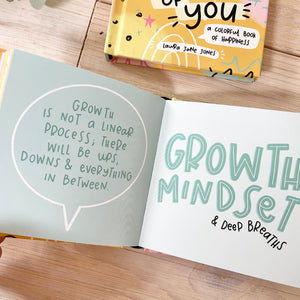 OF
YOU
a COLORFUL BOOK
OF HAPPINESS
LAURA JANE JONES
GROWTH
IS NOT A LINEAR
PROCESS; THERE
WILL BE UPS,
DOWNS & EVERYTHING
IN BETWEEN.
GROWTH
MINDSET
& DEEP BREATHS